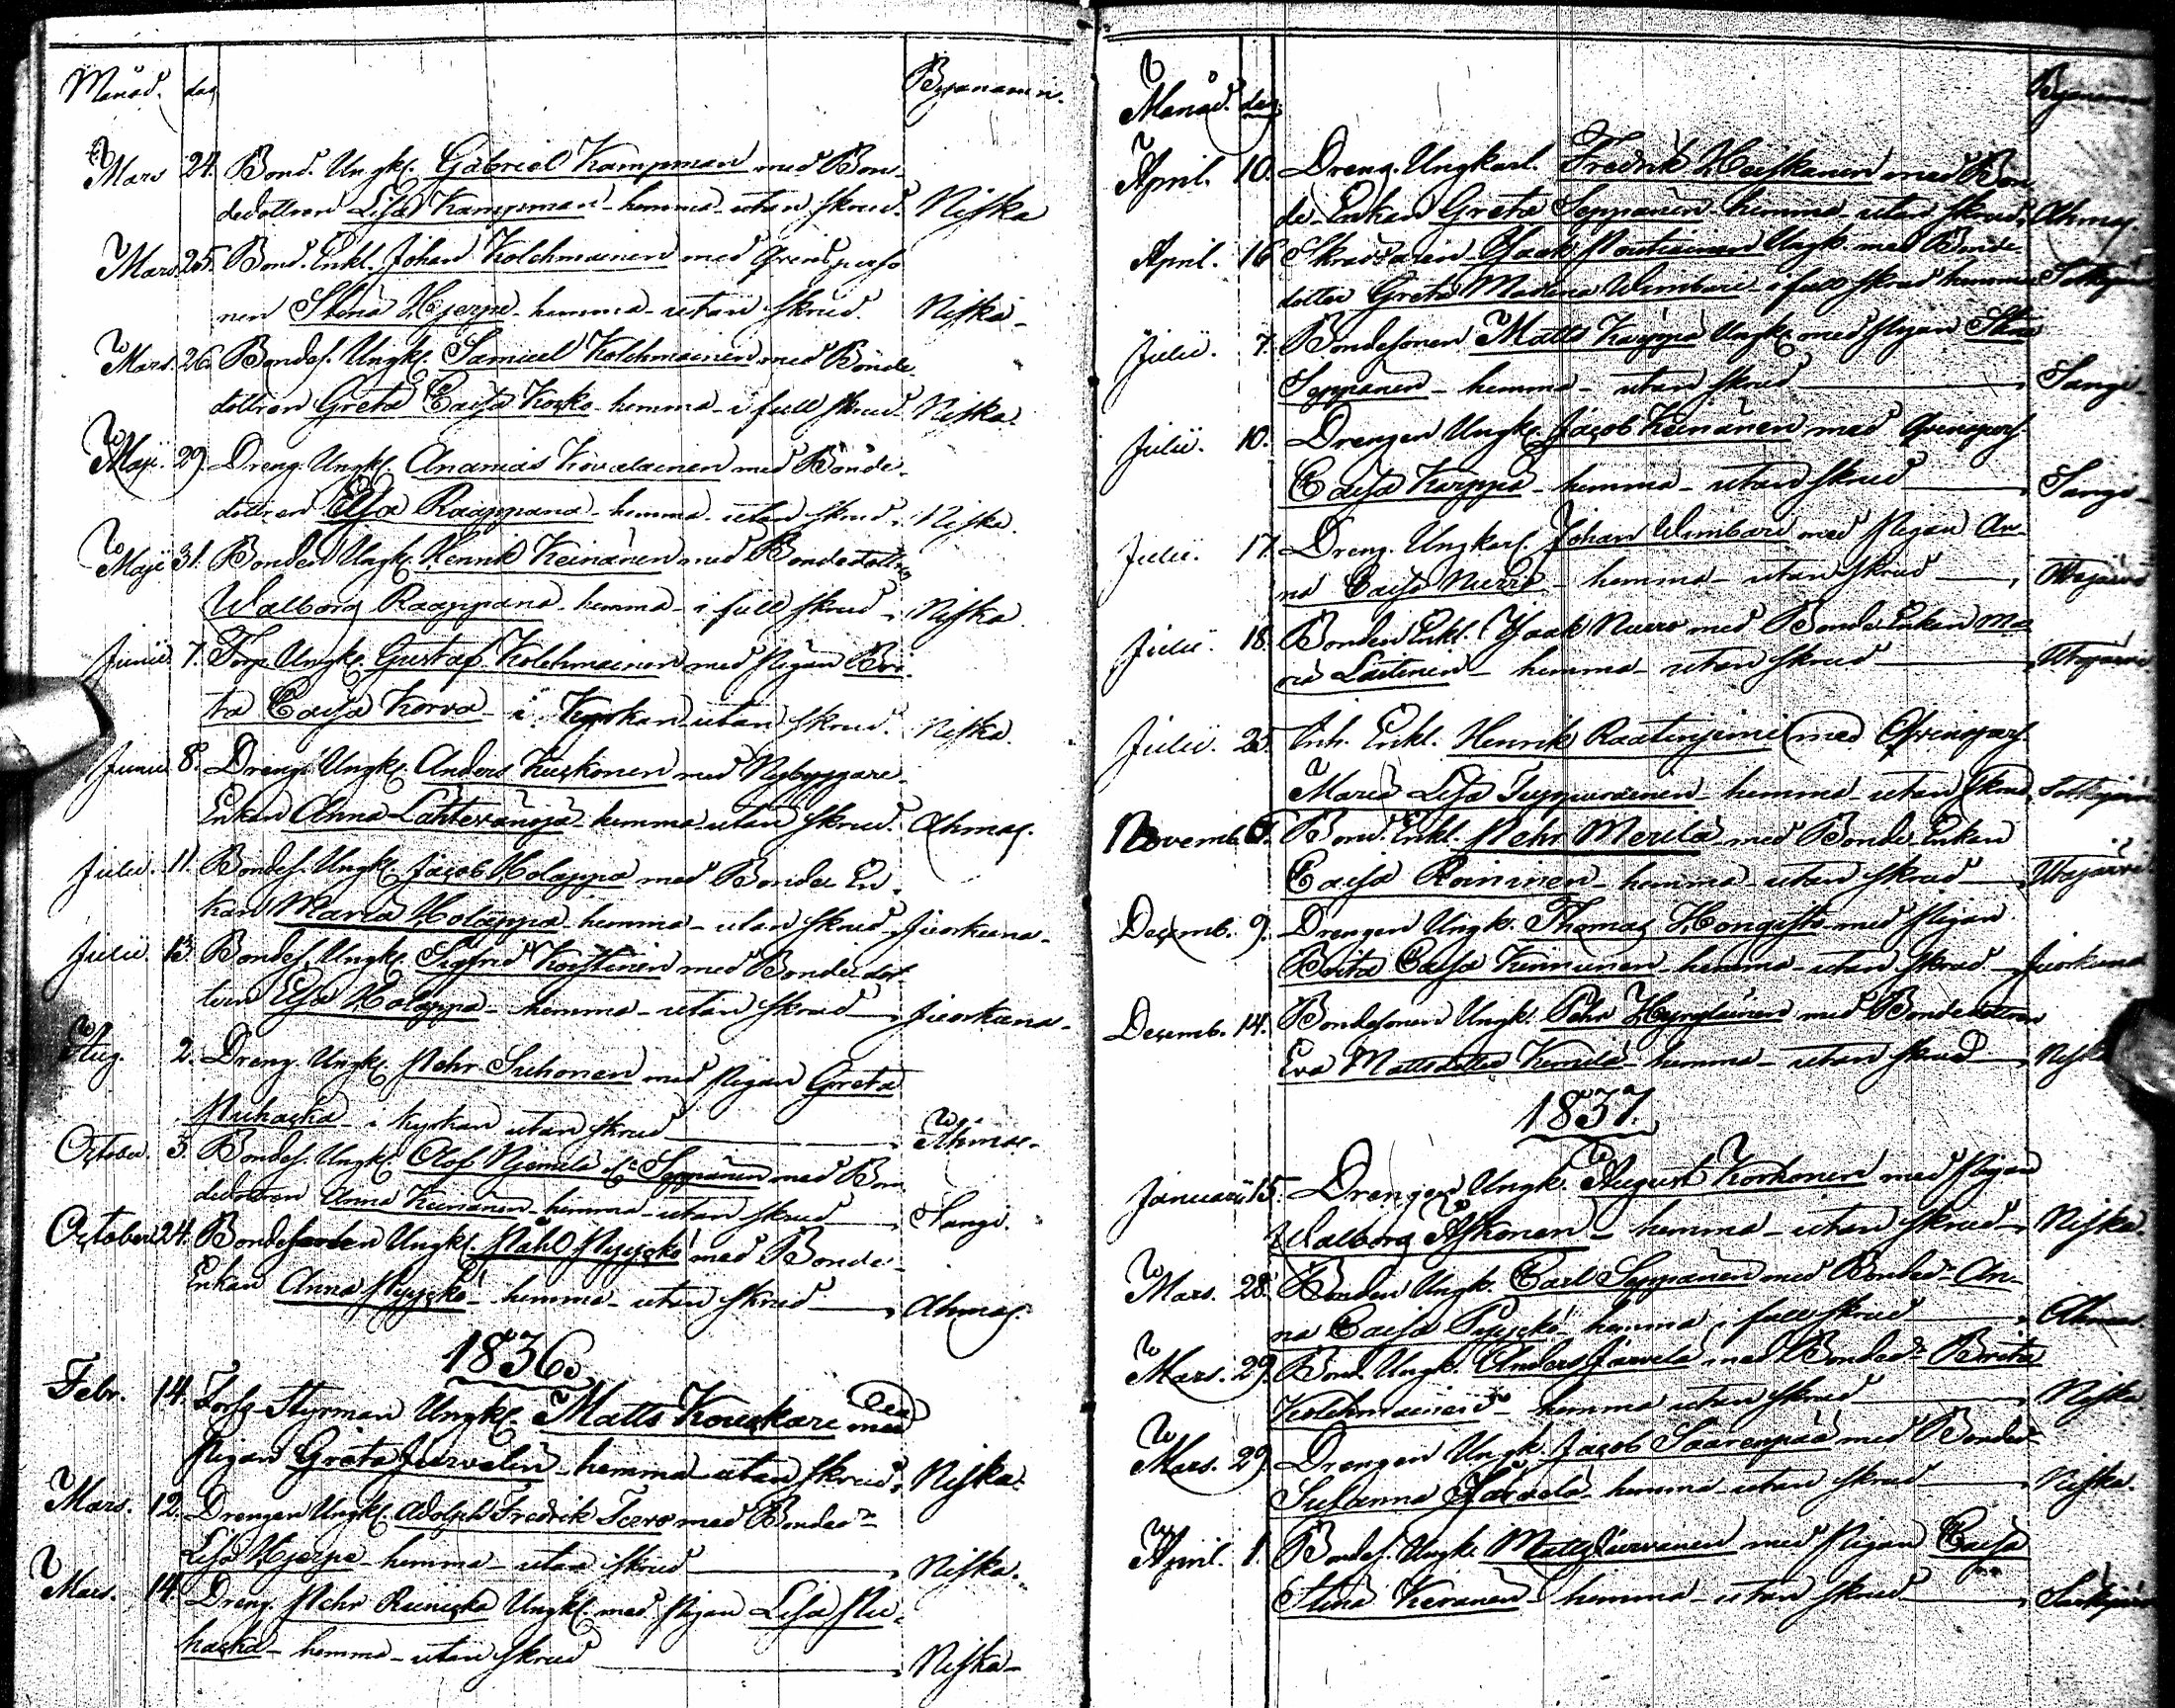 Månad. dag Byanamn.
Mars 24. Bond. Ungkl. Gabriel Kampman med Bon-
dedottren Lisa Kampman - hemma - utan skrud. Niska
Mars 25. Bond. Enkl. Johan Kolehmainen med Qvinsperso
nen Stina Hjerpe - hemma - utan skrud. Niska -
Mars. 26. Bondes. Ungkl. Samuel Kolehmainen med Bonde
dottren Greta Caisa Korko - hemma - i full skrud - Niska.
Maji. 29 Dreng. Ungkl. Ananias Kovalainen med Bonde-
dottren Elsa Raappana - hemma - utan skrud. Niska.
Maji 31. Bonden Ungkl. Henrik Keinänen med Bondedottren
Walborg Raappana - hemma - i full skrud - Niska
Junii 7. Torp. Ungkl. Gustaf Kolehmainen med Pigan Bri-
ta Caisa Korva - i Kyrkan utan skrud. Niska.
Junii 8. Dreng. Ungkl. Anders Kuskonen med Nybyggare
Enkan Anna Lahtevänoja - hemma - utan skrud. Ahmas.
Julii. 11. Bondes. Ungkl. Jacob Holappa med Bonde En-
kan Maria Holappa - hemma - utan skrud - Juorkuna -
Julii. 13. Bondes. Ungkl. Sigfrid Koistinen med Bondedot-
tren Elsa Holappa - hemma - utan skrud - Juorkuna -
Aug. 2. Dreng. Ungkl. Pehr Suhonen med Pigan Greta
Puhacka - i kyrkan utan skrud Ahmas -
October. 3. Bondes. Ungkl. Olof Njemelä el. Seppänen med Bon
dedottren Anna Keinänen - hemma - utan skrud - Sangi.
October 24. Bondesonen Ungkl. Påhl Pyyckö med Bonde-
Enkan Anna Pyyckö - hemma - utan skrud - Ahmas.
1836.
Febr. 14. Fors-Styrman Ungkl. Matts Kouckari med
Pigan Greta Jurvelin - hemma - utan skrud. Niska.
Mars. 12. Drengen Ungkl. Adolph Fredrik Tervo med Bonded:r
Lisa Hjerpe - hemma - utan skrud Niska.
Mars. 14. Dreng. Pehr Reinicka Ungkl. med Pigan Lisa Pu-
hacka - hemma - utan skrud Niska -
Månad. dag.
April. 10. Dreng. Ungkarl. Fredrik Heiskanen med Bon
de-Enkan Greta Seppänen - hemma - utan skrud, Ahmas.
April. 16 Skräddaren Isaak Poutiainen Ungk. med Bonde
dotter Greta Madena Wimbari - i full skrud hemma
Julii. 7. Bondesonen Matts Karppa Ungk. med Pigan Stina
Seppänen - hemma - utan skrud Sangi -
Julii. 10. Drengen Ungk. Jacob Keinänen med Qvinspers.
Caisa Karppa - hemma - utan skrud Sangi -
Julii. 17. Dreng. Ungkarl. Johan Wimbari med Pigan An-
na Caisa Nurro - hemma - utan skrud
Julii. 18. Bonden Enkl. Isaak Nurro med Bonde Enkan Ma
ria Laitinen - hemma - utan skrud
Julii. 25. Inh. Enkl. Henrik Raatinjemi med Qvinspers.
Maria Lisa Tuppurainen - hemma - utan skrud
Novemb. 6. Bond. Enkl. Pehr Merilä med Bonde Enkan
Caisa Roininen - hemma - utan skrud
Decemb. 9. Drengen Ungk. Thomas Hongisto med Pigan
Brita Caisa Kinnunen - hemma - utan skrud - Juorkuna
Decemb. 14. Bondesonen Ungk. Pehr Hyrylainen med Bondedottren
Eva Mattsdotter Kemilä - hemma - utan skrud - Niska
1837.
Januarii 15. Drengen Ungk. August Korhonen med Pigan
Walborg Askonen - hemma - utan skrud - Niska.
Mars. 28. Bonden Ungk. Carl Seppänen med Bonded:r An-
na Caisa Pyyckö - hemma i full skrud Ahmas.
Mars. 29. Bond. Ungk. Anders Järvelä med Bonded:r Brita
Kolehmainen - hemma utan skrud Niska
Mars. 29. Drengen Ungk. Jacob Saarenpää med Bonded:r
Susanna Järvelä - hemma - utan skrud Niska.
April. 1. Bondes. Ungk. Matts Jurvanen med Pigan Caisa
Stina Keränen - hemma - utan skrud